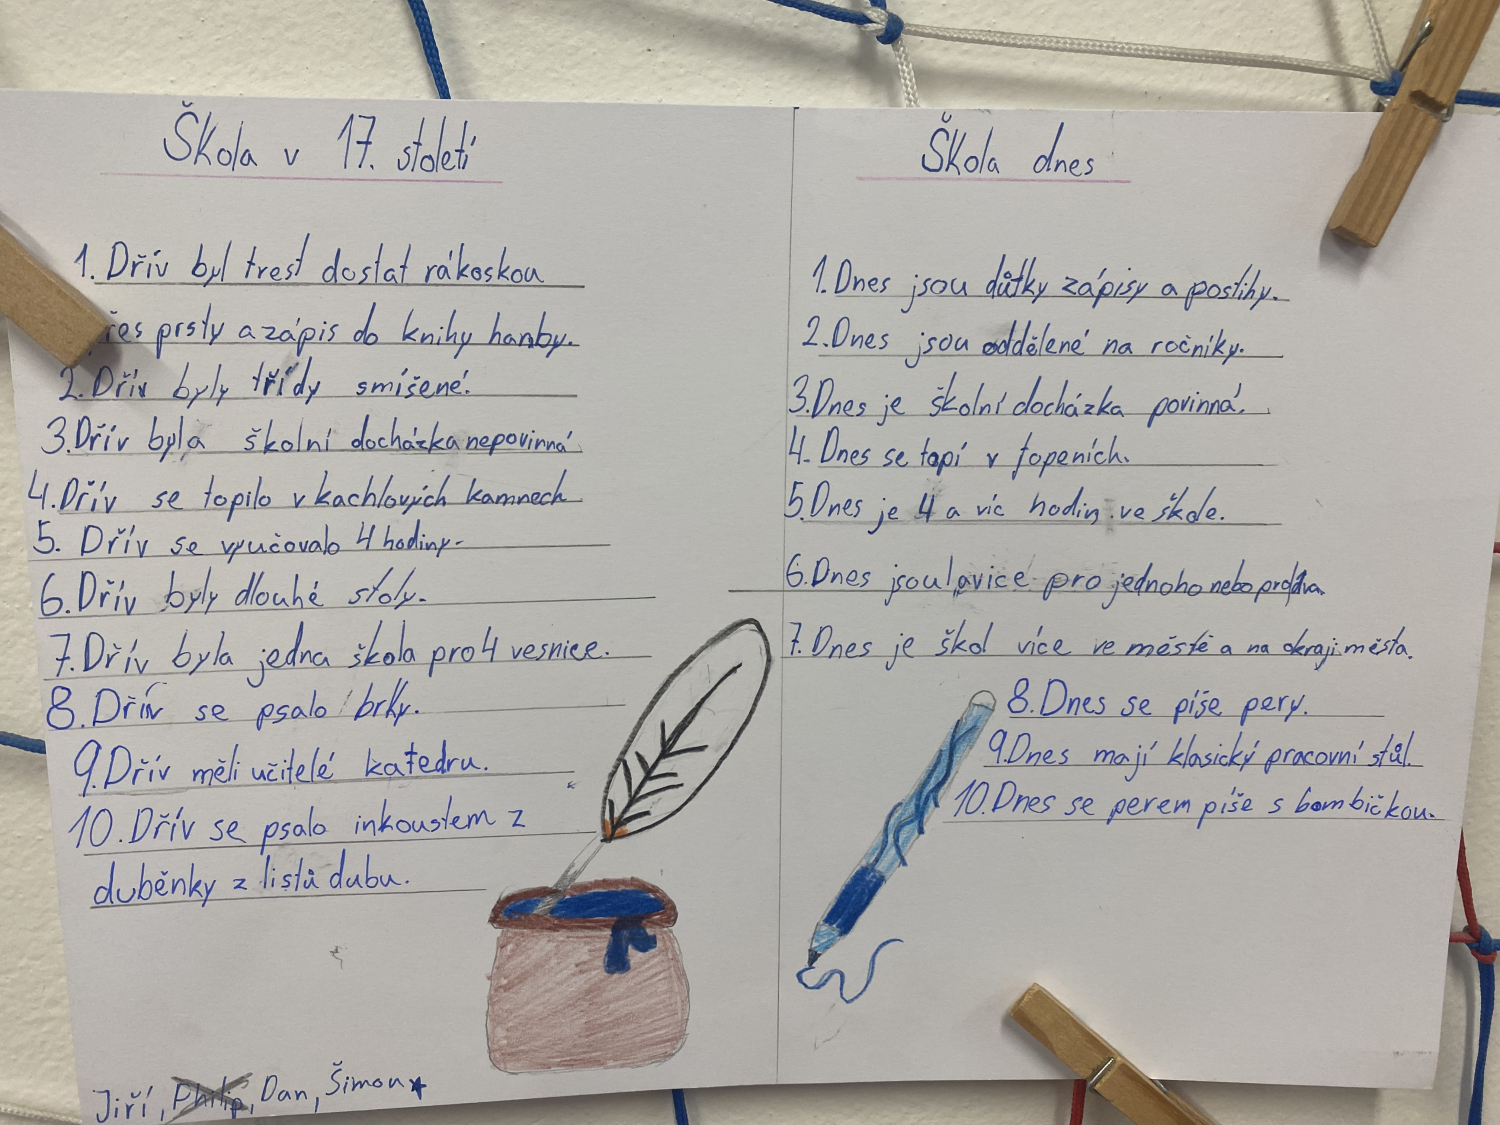 Škola v 17. století
1. Dřív byl trest dostat rákoskou
řes prsty a zápis do knihy hanby.
2. Dřív byly třídy smíšené.
3. Dřív byla školní docházka nepovinná
4. Dřív se topilo v kachlových kamnech
5. Dřív se vyučovalo 4 hodiny.
6. Dřív byly dlouhé stoly.
7. Dřív byla jedna škola pro 4 vesnice.
8. Dřív se psalo brky.
9. Dřív měli učitelé katedru.
10. Dřív se psalo inkoustem z
duběnky z listů dubu.
Jiří, Philip, Dan, Šimon
Škola dnes
1. Dnes jsou důtky zápisy a postihy.
2. Dnes jsou oddělené na ročníky.
3. Dnes je školní docházka povinná.
4. Dnes se topí v topeních.
5. Dnes je 4 a víc hodin ve škole.
6. Dnes jsou lavice pro jednoho nebo pro dva.
7. Dnes je škol více ve městě a na okraji města.
8. Dnes se píše pery.
9. Dnes mají klasický pracovní stůl.
10. Dnes se perem píše s bombičkou.